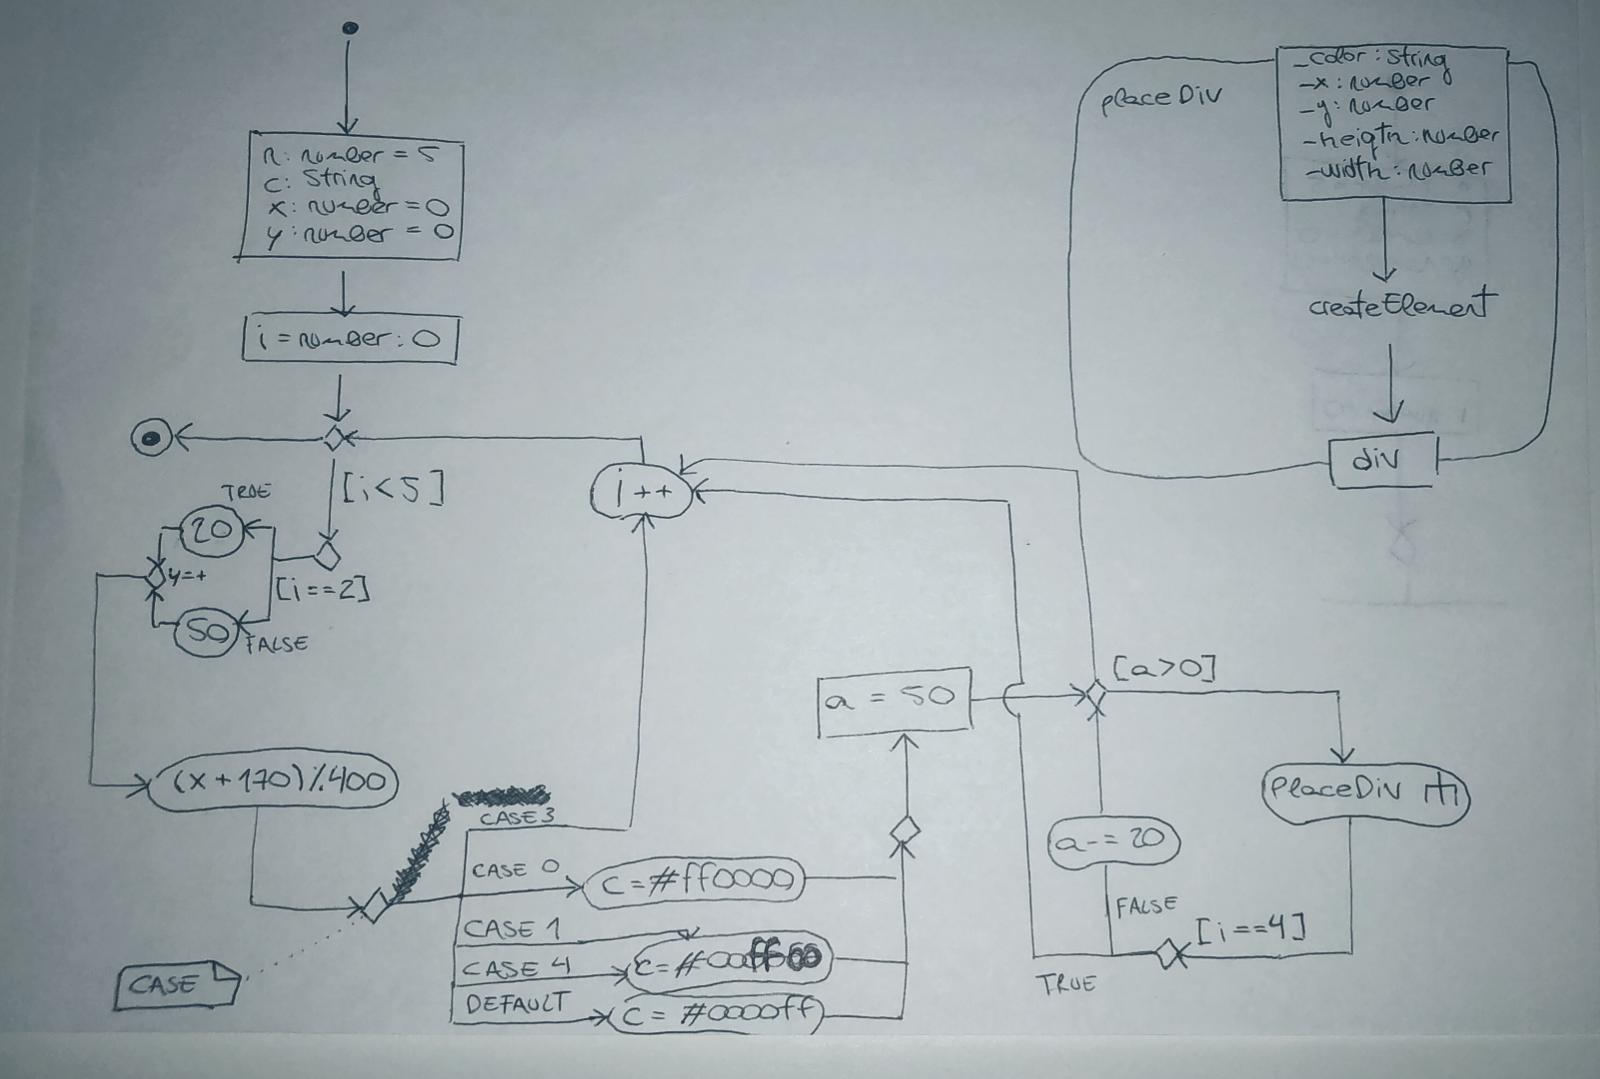 n: number = 5
c: String
x: number = 0
y: number = 0
i = number: 0
[i<5]
TRUE
20
y=+
[i==2]
50
FALSE
(x+170)%400
CASE
CASE 3
CASE 0
c=#ff0000
CASE 1
CASE 4
c=#00ff00
DEFAULT
c= #0000ff
i++
a = 50
[a>0]
placeDiv
a-= 20
FALSE
[i==4]
TRUE
placeDiv
_color: String
-x: number
-y: number
-heigth: number
-width: number
createElement
div